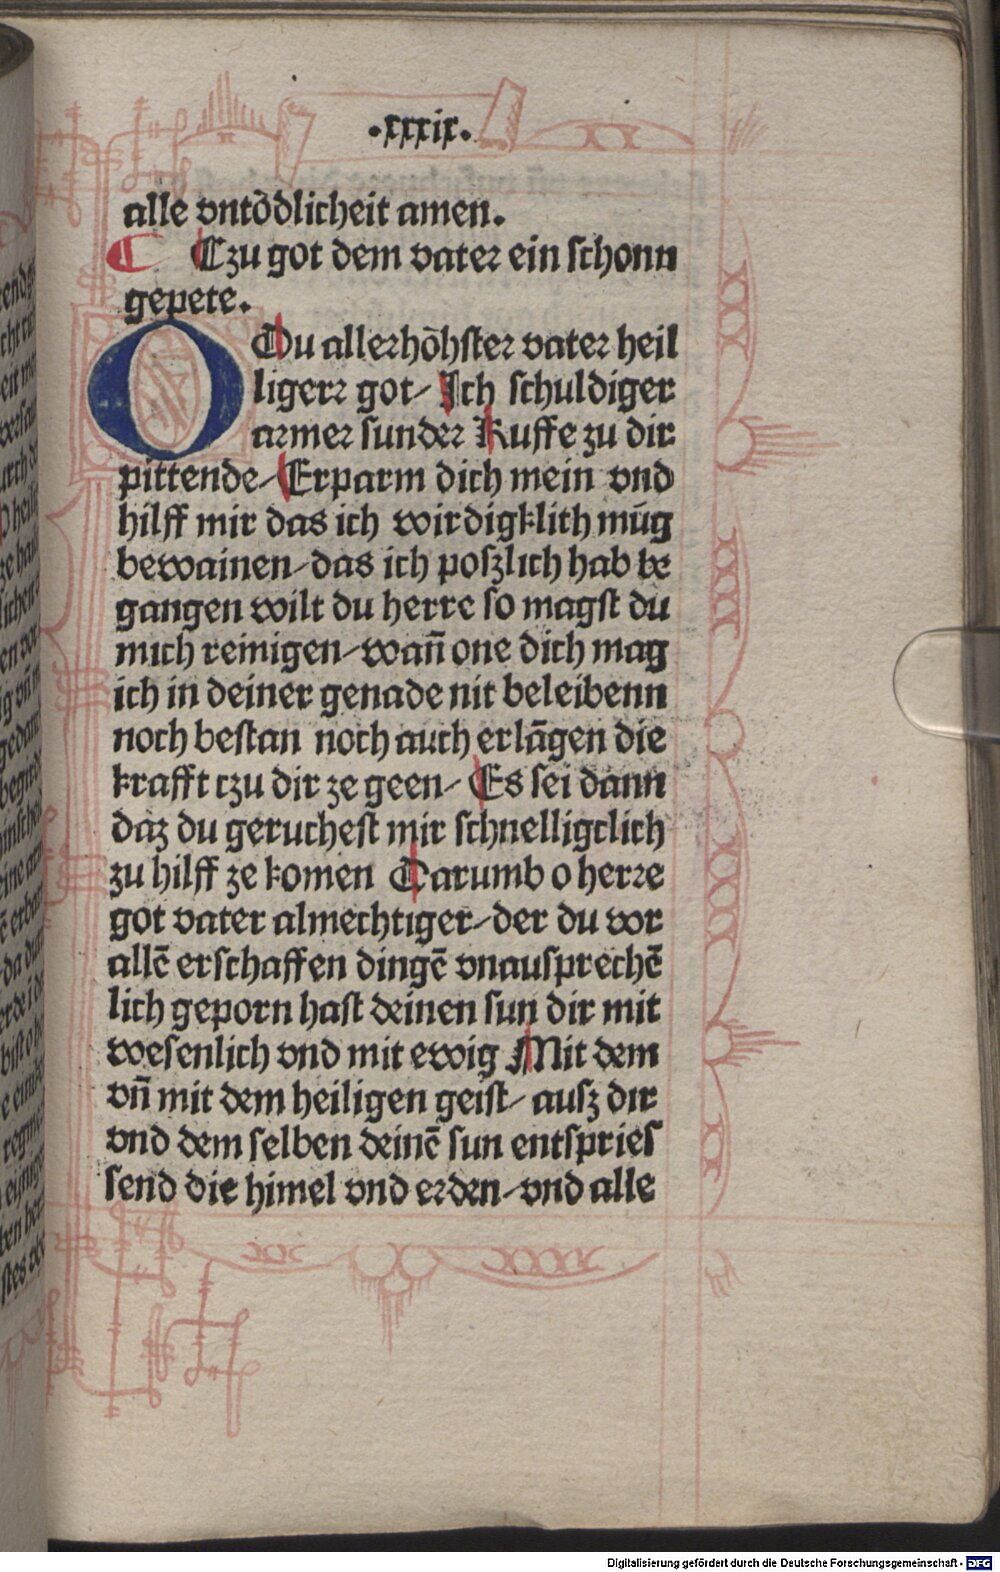 .xxxix.
alle vntödlicheit amen.
Czu got dem vater ein schonn
gepete.
O Du allerhöhster vater heil
ligerr got/ Ich schuldiger
armer sunder Kuffe zu dir
pittende/ Erparm dich mein vnd
hilff mir das ich wirdigklich müg
bewainen/das ich poszlich hab be
gangen wilt du herre so magst du
mich reinigen/wañ one dich mag
ich in deiner genade nit beleibenn
noch bestan noch auch erlāgen die
krafft czu dir ze geen/ Es sei dann
daz du geruchest mir schnelligclich
zu hilff ze komen Darumb o herre
got vater almechtiger/der du vor
allē erschaffen dingē vnausprechē
lich geporn hast deinen sun dir mit
wesenlich vnd mit ewig Mit dem
vñ mit dem heiligen geist/ ausz dir
vnd dem selben deinē sun entspries
send die himel vnd erden/vnd alle
Digitalisierung gefördert durch die Deutsche Forschungsgemeinschaft - DFG